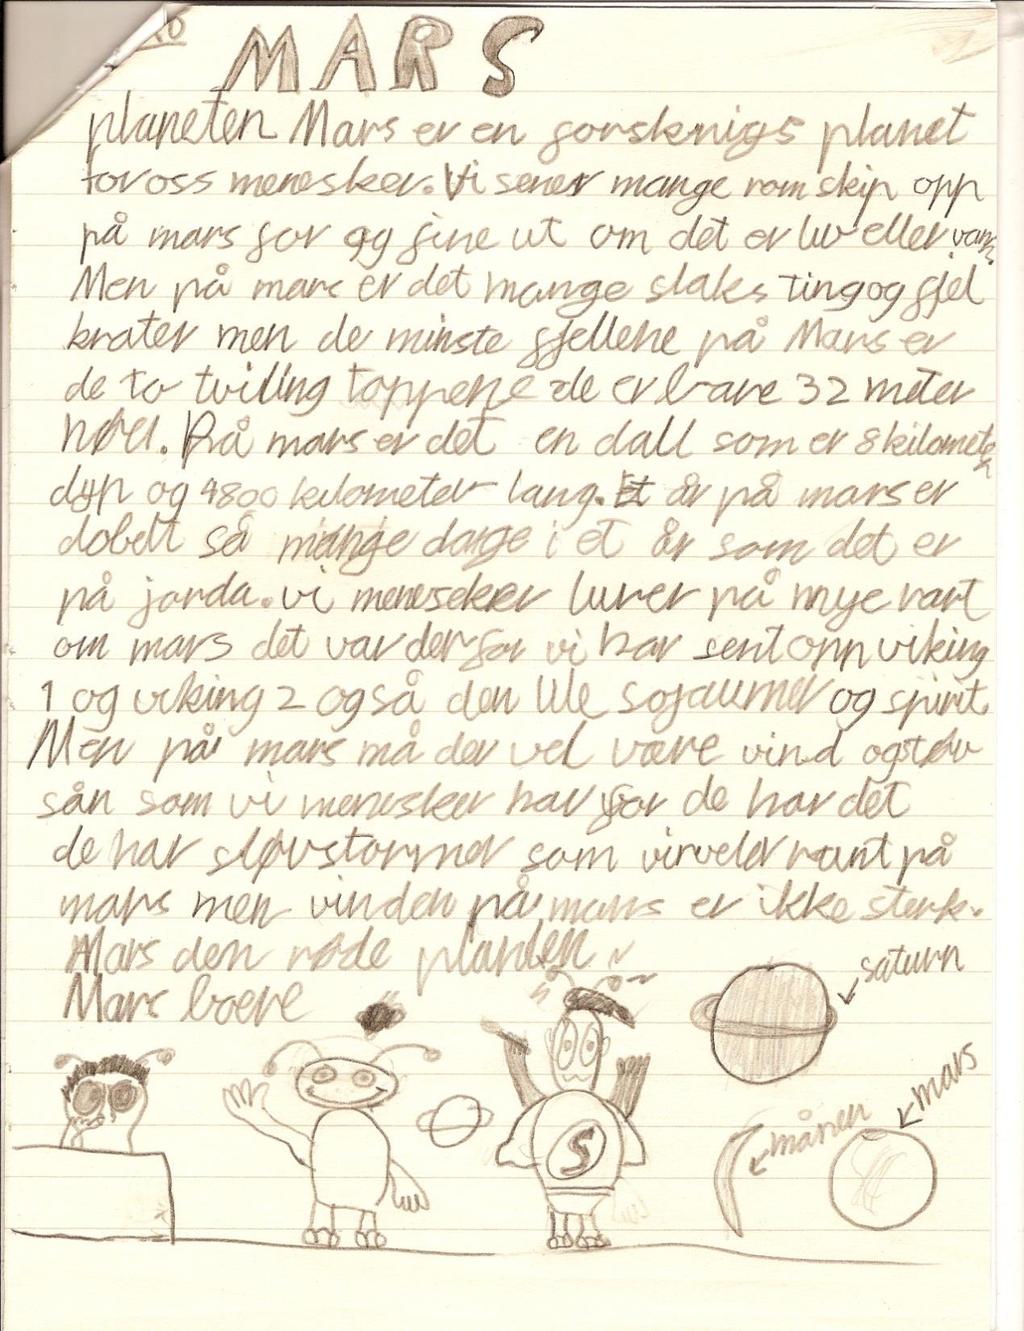 MARS
planeten Mars er en forsknigs planet
for oss menesker. Vi sener mange romskip opp
på mars for og fine ut om det er liv eller van.
Men på mars er det mange slaks ting og fjel
krater men de minste fjellene på Mars er
de to tviling toppene de er bare 32 meter
høu. På mars er det en dall som er 8 kilometer
dyp og 4800 kilometer lang. Et år på mars er
dobelt så mange darge i et år som det er
på jorda. vi meneseker lurer på mye rart
om mars det var derfor vi har sent opp viking
1 og viking 2 også den lile sojaurner og spirit.
Men på mars må der vel være vind og støv
sån som vi menesker har for de har det
de har støvstormer som virveler runt på
mars men vinden på mars er ikke sterk.
Mars den røde planten
Mars boere
saturn
mars
månen
S